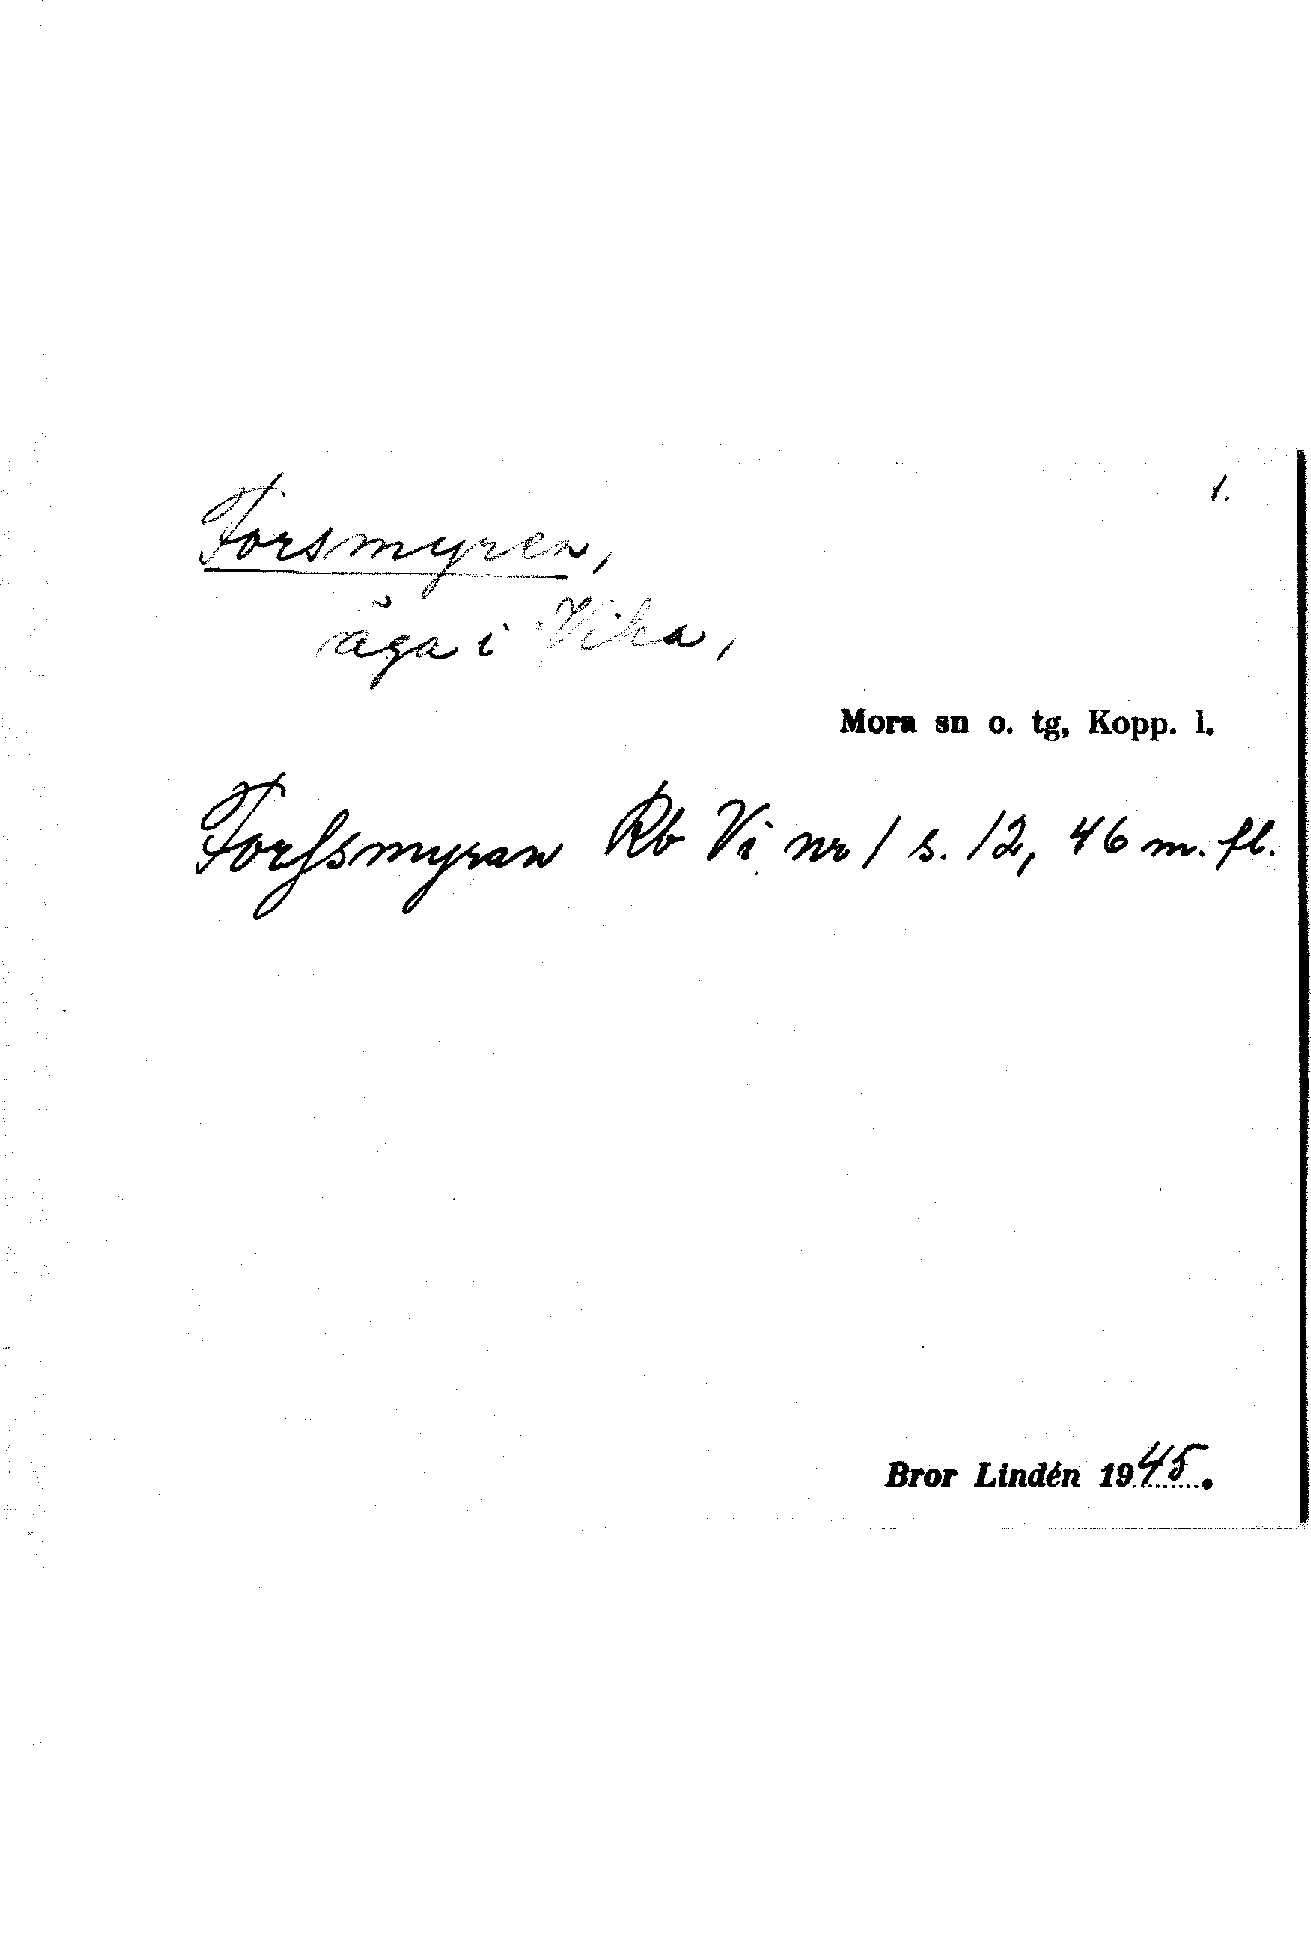 1.
Forsmyren,
äga i Vika,
Mora sn o. tg, Kopp. l.
Forssmyran Rb Vi nr 1 s. 12, 46 m. fl.
Bror Lindén 1945.